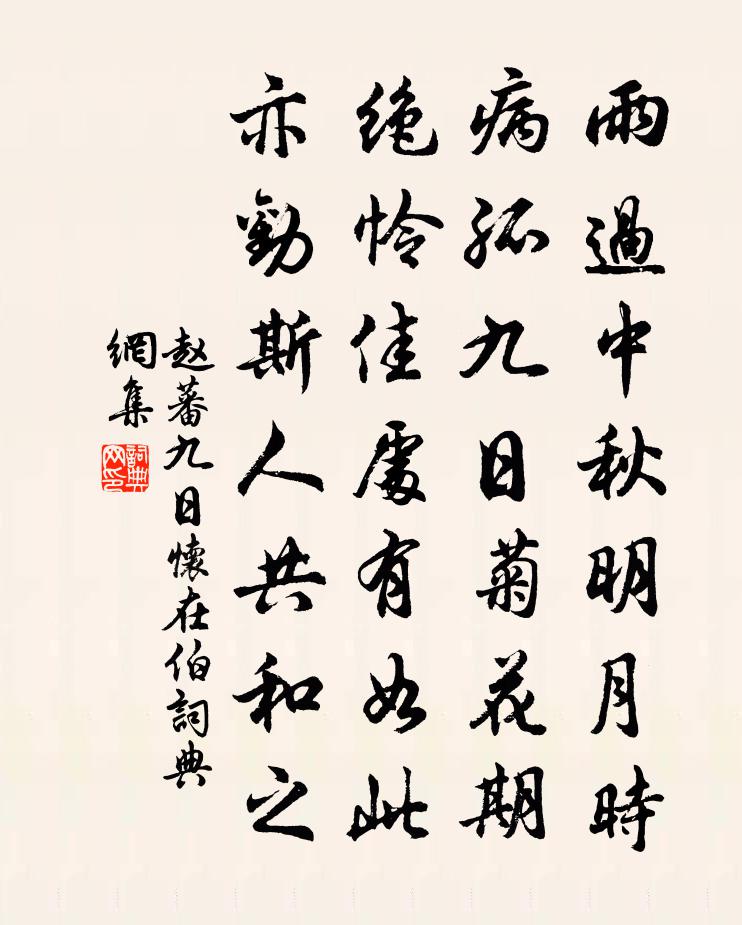 雨過中秋明月時
病孤九日菊花期
絶怜佳處有如此
亦勸斯人共和之
赵蕃九日懷在伯詞典
網集
詞典
网印